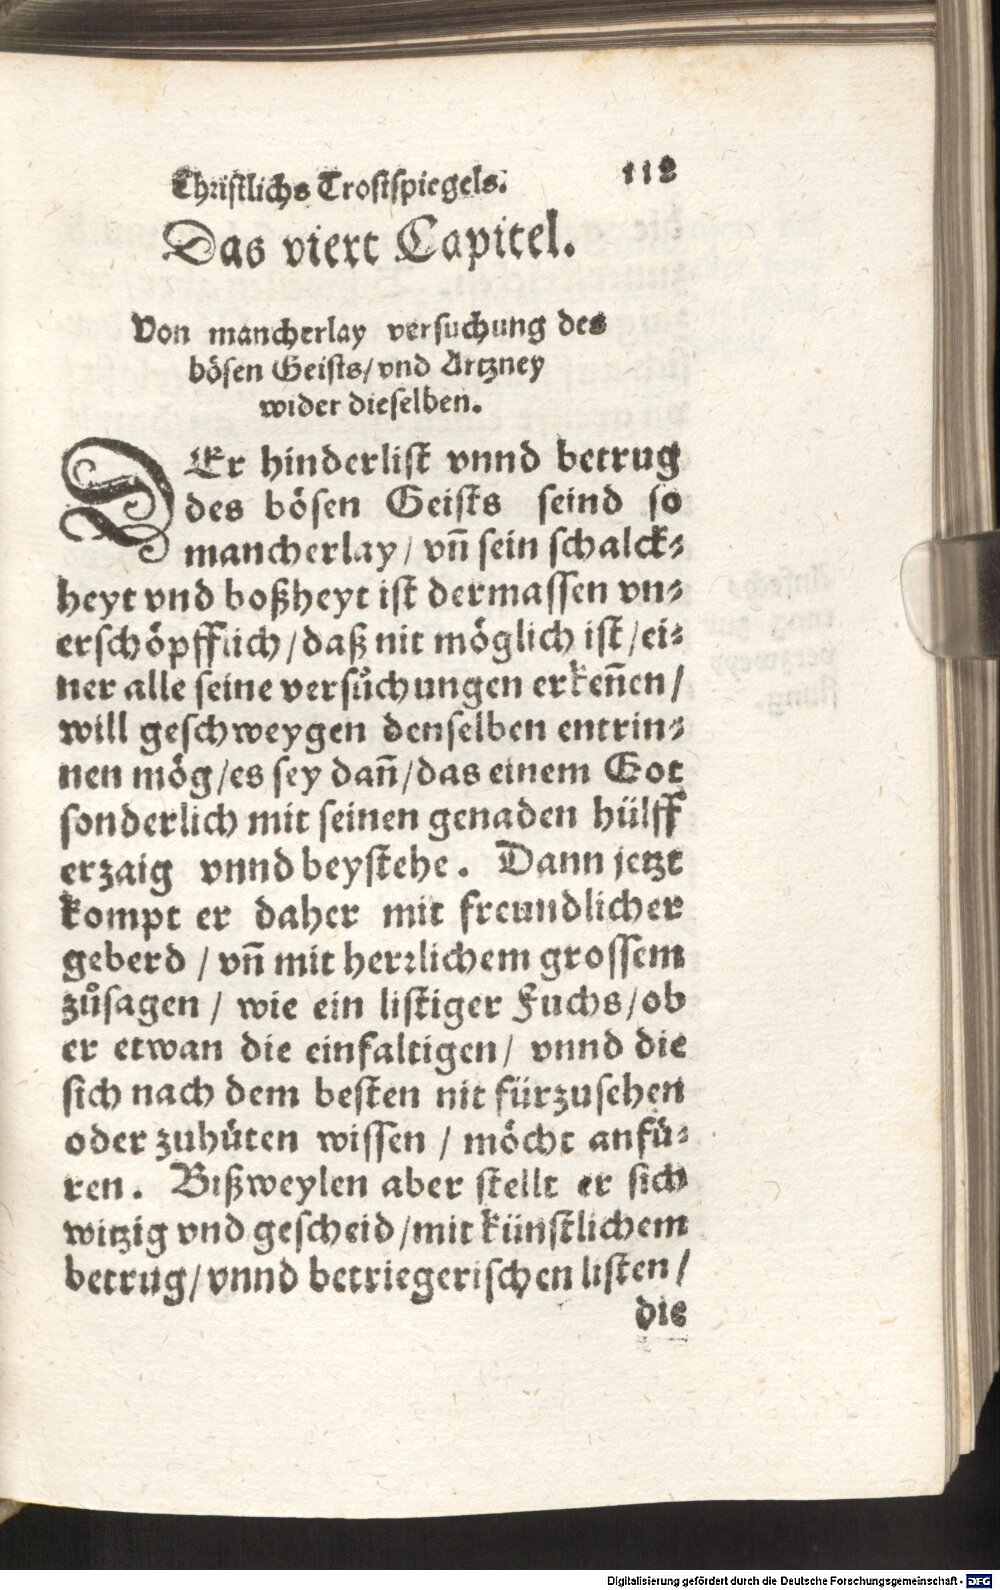 Christlichs Trostspiegels. 112
Das viert Capitel.
Von mancherlay versuchung des
bösen Geists/ vnd Artzney
wider dieselben.
DEr hinderlist vnnd betrug
des bösen Geists seind so
mancherlay/ vn̄ sein schalck⸗
heyt vnd boßheyt ist dermassen vn⸗
erschöpfflich/ daß nit möglich ist/ ei⸗
ner alle seine versůchungen erken̄en/
will geschweygen denselben entrin⸗
nen mög/ es sey dan̄/ das einem Got
sonderlich mit seinen genaden hülff
erzaig vnnd beystehe. Dann jetzt
kompt er daher mit freundlicher
geberd/ vn̄ mit herrlichem grossem
zůsagen/ wie ein listiger Fuchs/ ob
er etwan die einfaltigen/ vnnd die
sich nach dem besten nit fürzusehen
oder zuhüten wissen/ möcht anfü⸗
ren. Bißweylen aber stellt er sich
witzig vnd gescheid/ mit künstlichem
betrug/ vnnd betriegerischen listen/
die
Digitalisierung gefördert durch die Deutsche Forschungsgemeinschaft - DFG